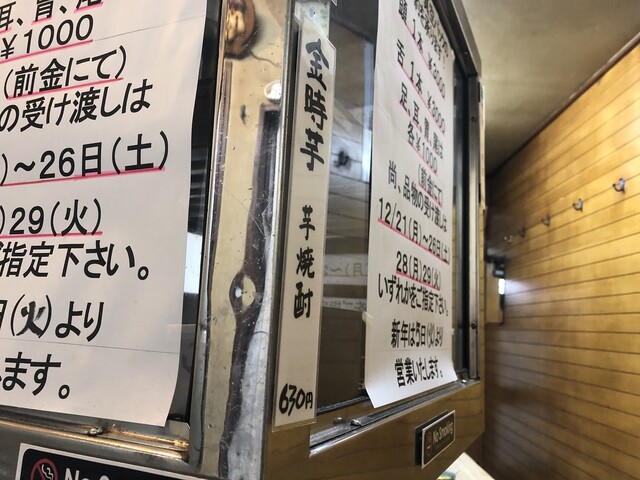 耳、胃、尾
￥1000
(前金にて)
の受け渡しは
)～26日(土)
)29(火)
指定下さい。
(火)より
ます。
No S
金時芋 芋焼酎 630円
舌 1本 ￥800
足、耳、胃、尾は
各￥1000
(前金にて)
尚、品物の受け渡しは
12/21(月)～26日(土)
28(月)29(火)
いずれかをご指定下さい。
新年は5日(火)より
営業いたします。
No Smoking